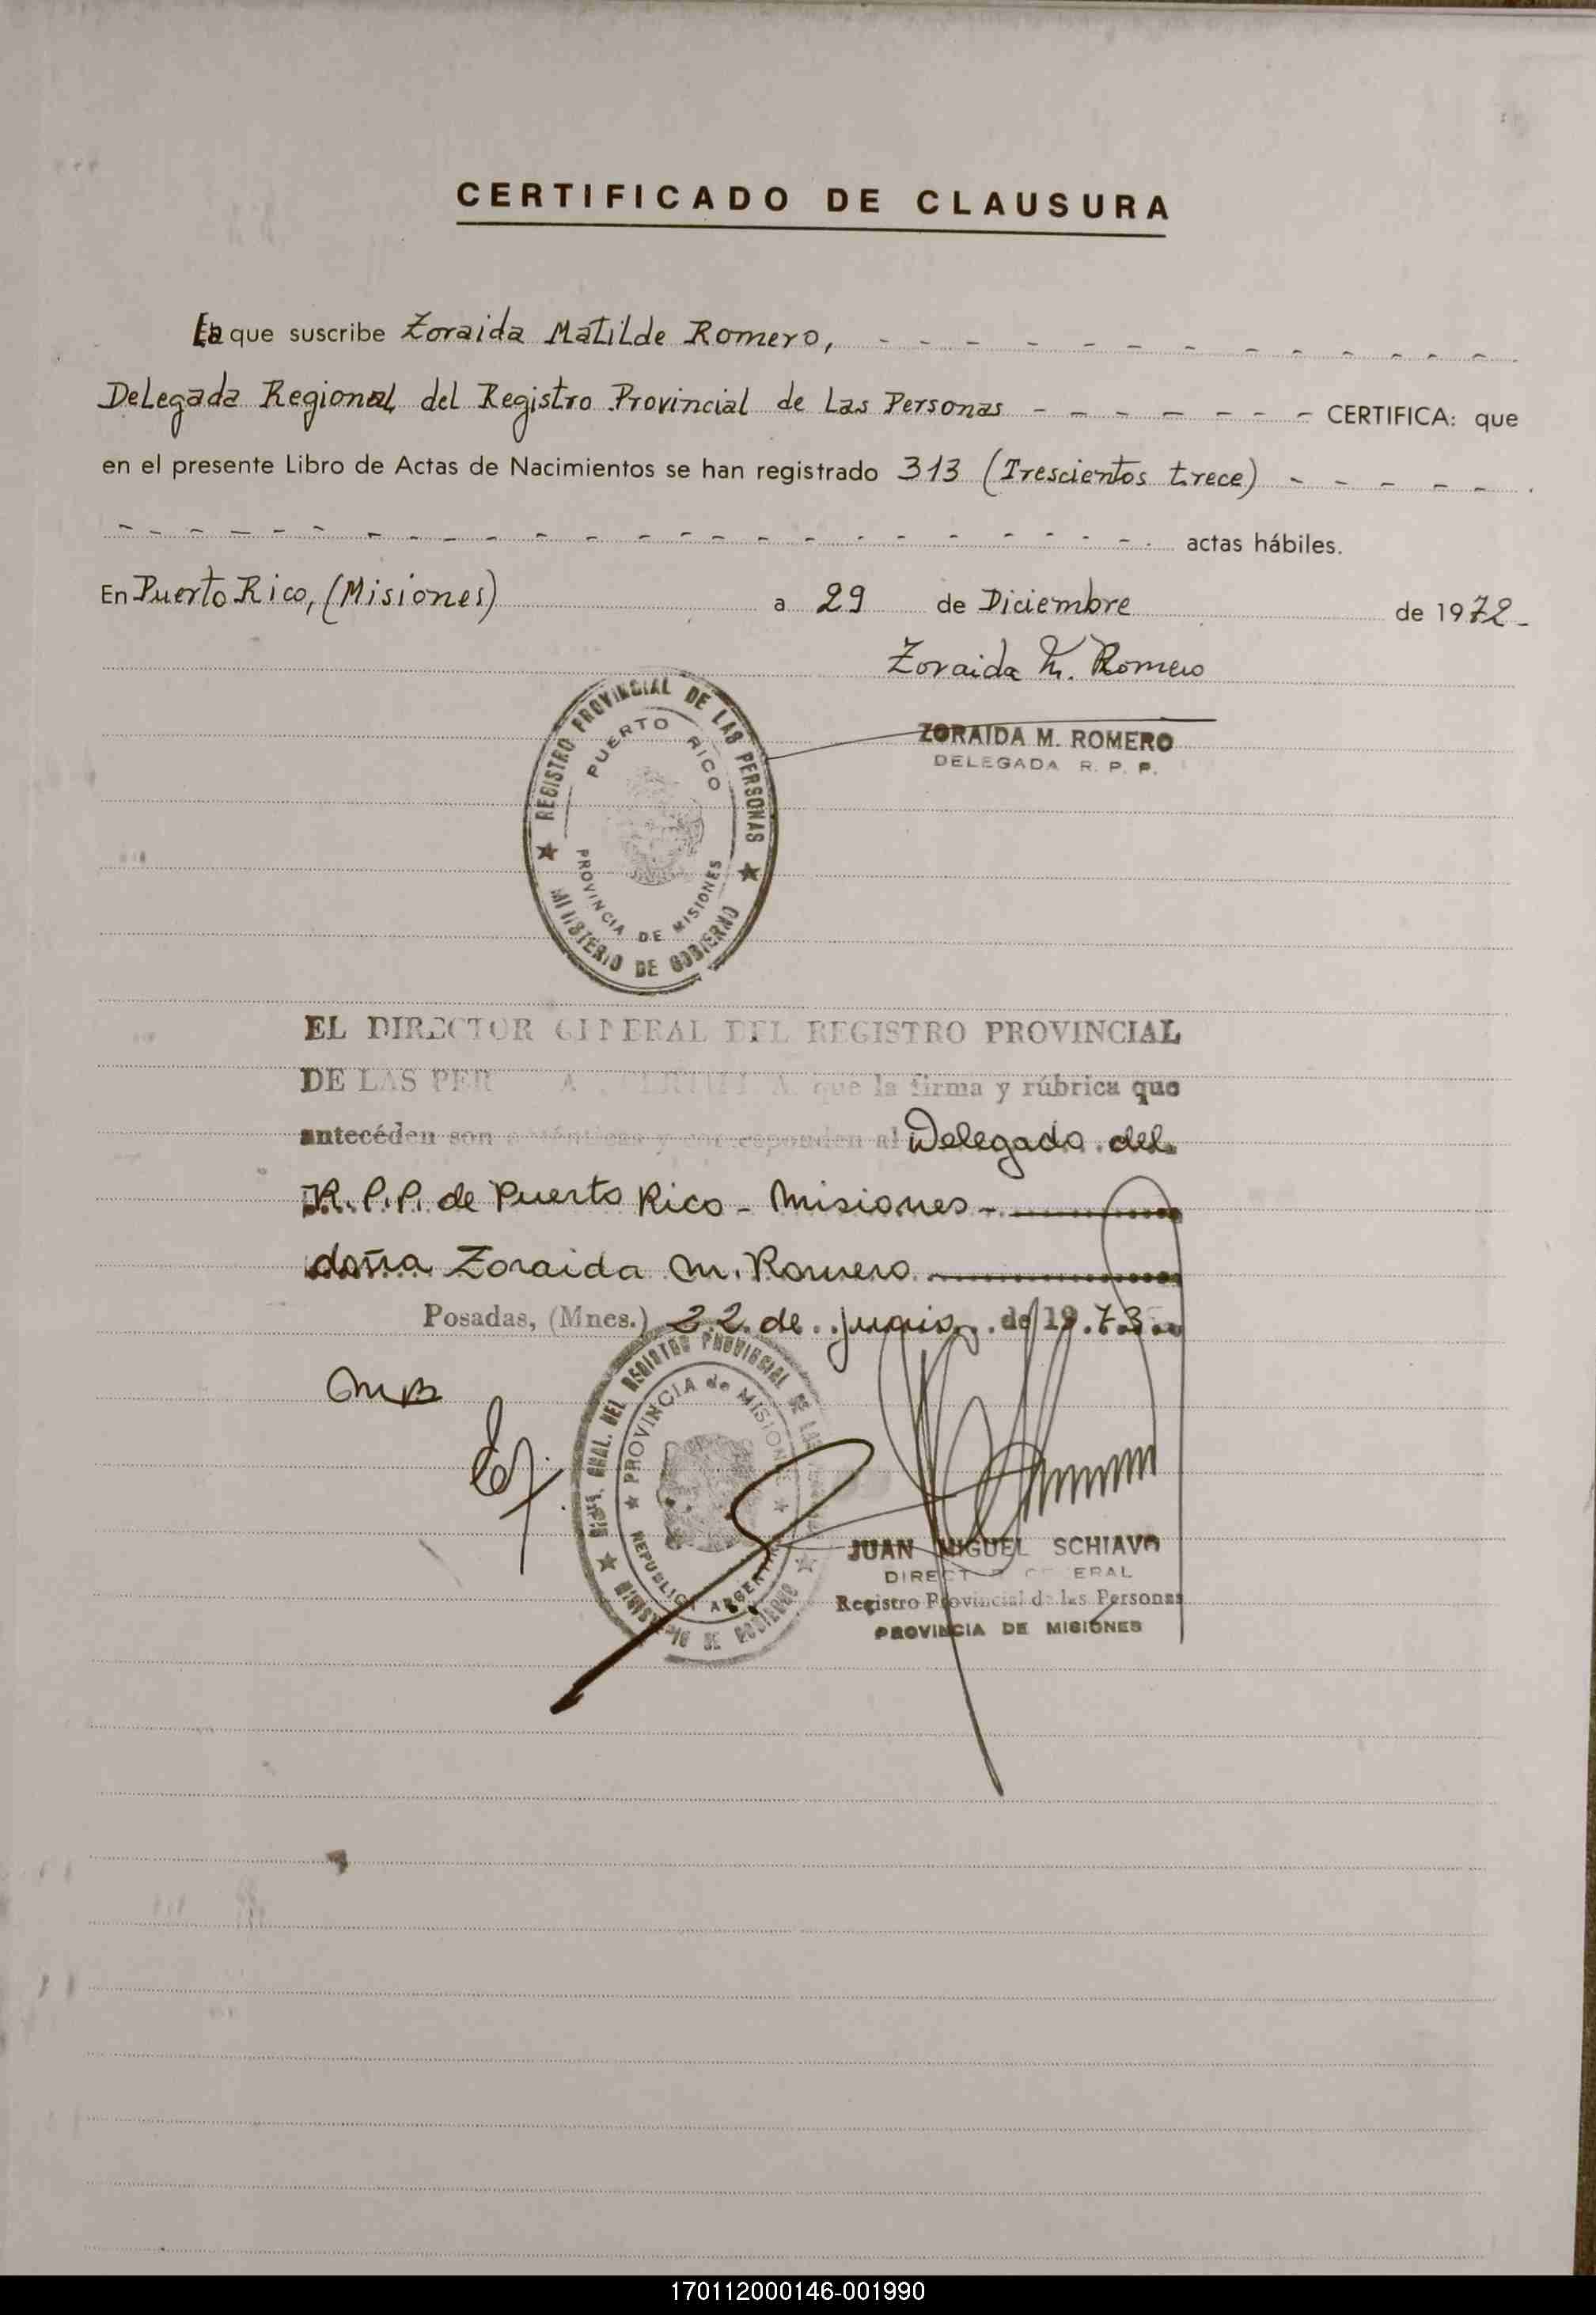 CERTIFICADO DE CLAUSURA
La que suscribe Zoraida Matilde Romero,
Delegada Regional del Registro Provincial de Las Personas CERTIFICA: que
en el presente Libro de Actas de Nacimientos se han registrado 313 (Trescientos trece)
actas hábiles.
En Puerto Rico, (Misiones) a 29 de Diciembre de 1972
Zoraida M. Romero
ZORAIDA M. ROMERO
DELEGADA R. P. P.
REGISTRO PROVINCIAL DE LAS PERSONAS
PUERTO RICO
PROVINCIA DE MISIONES
MINISTERIO DE GOBIERNO
EL DIRECTOR GENERAL DEL REGISTRO PROVINCIAL
DE LAS que la firma y rúbrica que
antecéden son auténticas y corresponden al Delegado del
R.P.P. de Puerto Rico - Misiones -
doña Zoraida M. Romero
Posadas, (Mnes.) 22 de junio de 1973
MB
GRAL. DEL REGISTRO PROVINCIAL DE LAS
PROVINCIA de MISIONES
REPUBLICA ARGENTINA
MINISTERIO DE GOBIERNO
JUAN MIGUEL SCHIAVO
DIRECTOR GENERAL
Registro Provincial de las Personas
PROVINCIA DE MISIONES
170112000146-001990